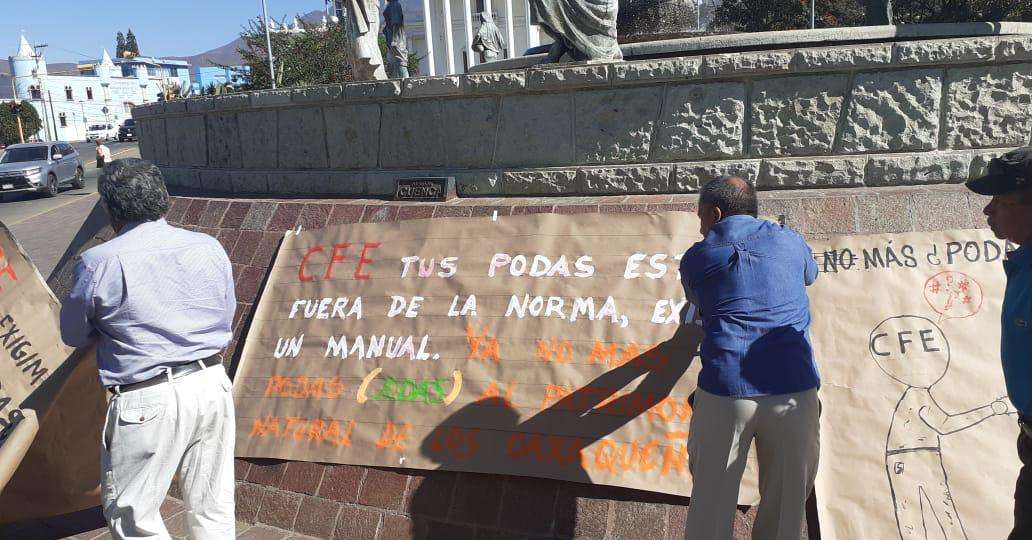 EXIGIM
CFE TUS PODAS EST
FUERA DE LA NORMA, EXI
UN MANUAL. YA NO MAS
PODAS (JODAS) AL PATRIMON
NATURAL DE LOS OAXAQUEÑ
NO MÁS ¿ PODA
CFE